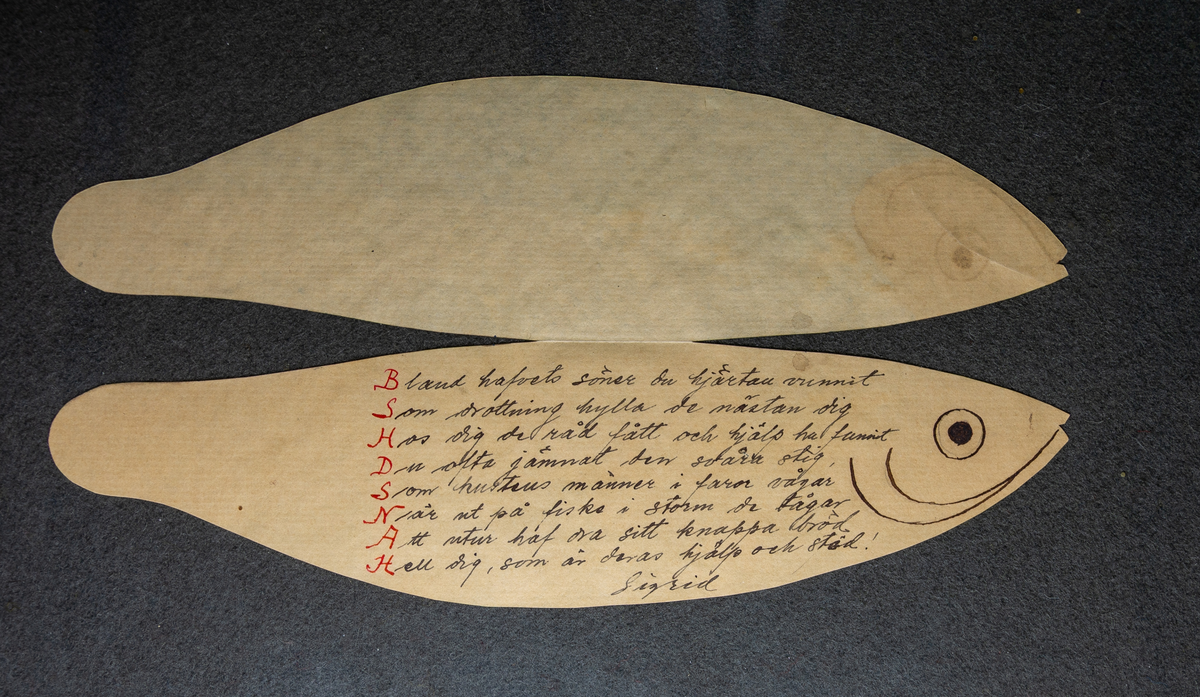 Bland hafvets söner du hjärtan vunnit
Som drottning hylla de nästan dig
Hos dig de råd fått och hjälp ha funnit
Du ofta jämnat den svåra stig,
Som kustens männer i faror vågar
När ut på fiske i storm de tågar
Att utur haf dra sitt knappa bröd
Hell dig, som är deras hjälp och stöd!
Sigrid